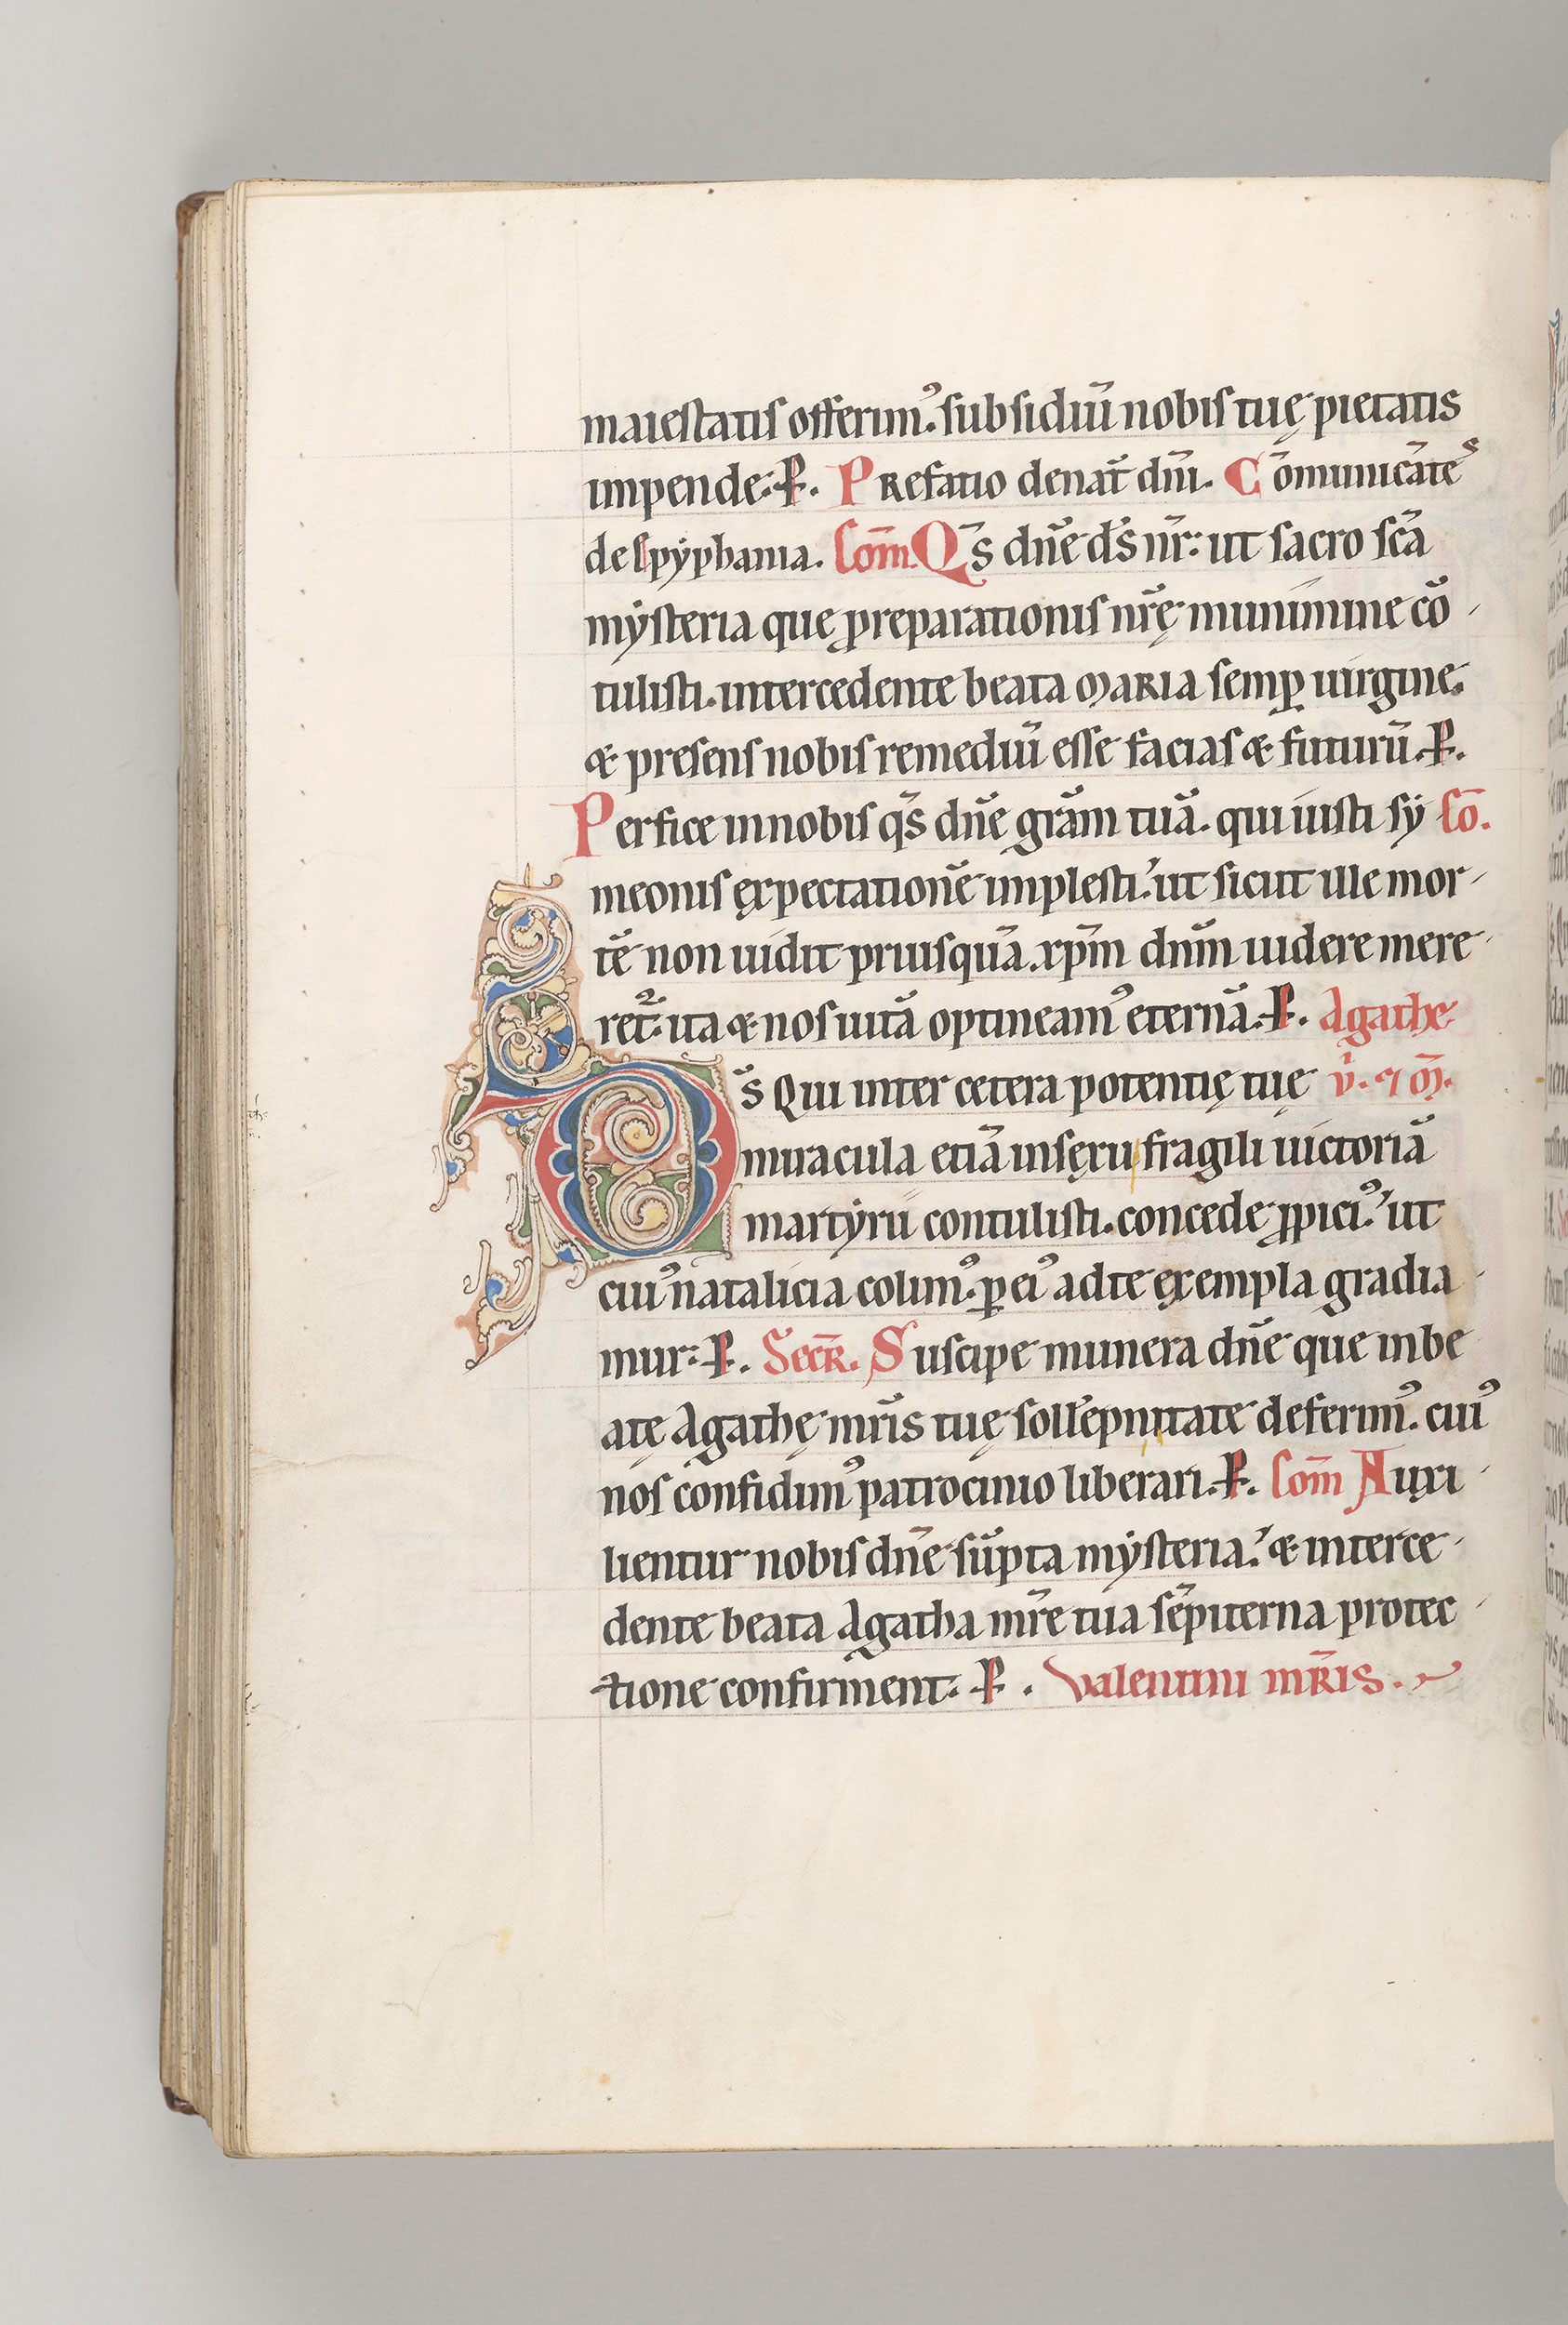 maiestatis offerim᷒. subsidiū nobis tuę pietatis
impende. P̶. Prefatio de nat̄ dn̄i. Cōmunicātes
de epyphania. Com̄. Qs̄ dn̄e ds̄ nr̄: ut sacro scā
mẏsteria que p̄reparationis nr̄ę munimine cō
tulisti. intercedente beata MARIA semꝑ uirgine.
& presens nobis remediū esse facias & futurū. P̶.
Perfice in nobis qs̄ dn̄e grām tuā. qui iusti sy Cō.
meonis expectationē implesti. ut sicut ille mor
tē non uidit priusquā xp̄m dn̄m uidere mere
ret᷑. ita & nos uitā optineam᷒ eternā. P̶. Agathe
Ds̄ Qui inter cetera potentię tuę v̄. ⁊ m̄.
miracula etiā in sexu fragili uictoriā
martẏrū contulisti. concede ꝓpici᷒. ut
cui᷒ natalicia colim᷒. ꝑ ei᷒ ad te exempla gradia
mur. P̶. Secr̄. Suscipe munera dn̄e que in be
atę Agathę mr̄is tuę sollēpnitate deferim᷒. cui᷒
nos confidim᷒ patrocinio liberari. P̶. Com̄ Auxi
lientur nobis dn̄e sūpta mẏsteria. & interce
dente beata Agatha mr̄e tua sēpiterna protec
tione confirment. P̶. Valentini mr̄is.